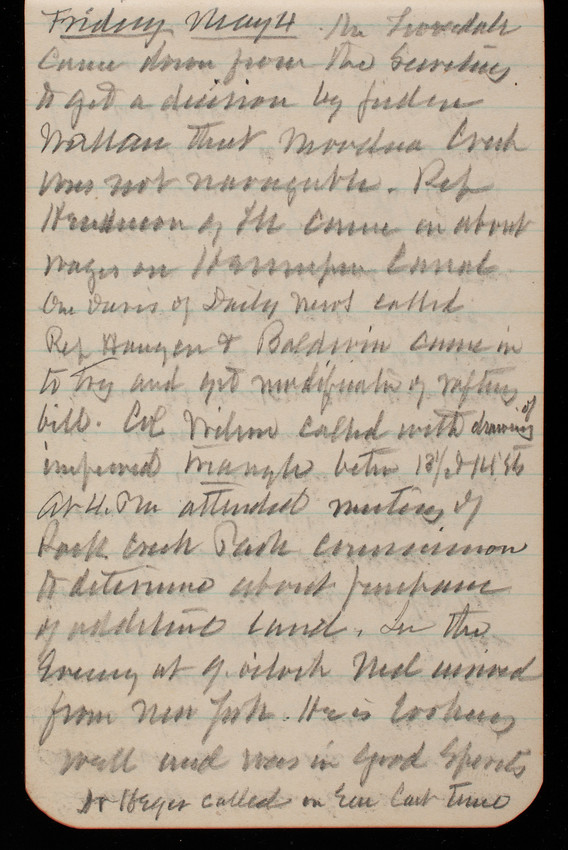 Friday May 4 Mr
came down from the Secretary
to get a decision by Judge
that Creek
was not navagable. Rep
Henderson of Ill came in about
wages on Hennepin Canal
One Davis of Daily News called
Rep Haugen & Baldwin came in
to try and get modification of rafting
bill. Col Wilson called with drawing of
improved triangle betw 13½ & 14 Sts
At 4. Pm attended meeting of
Rock Creek Park commission
to determine about purchase
of additional land. In the
Evening at 9. oclock Ned arrived
from New York. He is looking
well and was in good Spirits
Dr Heger called on Gen time